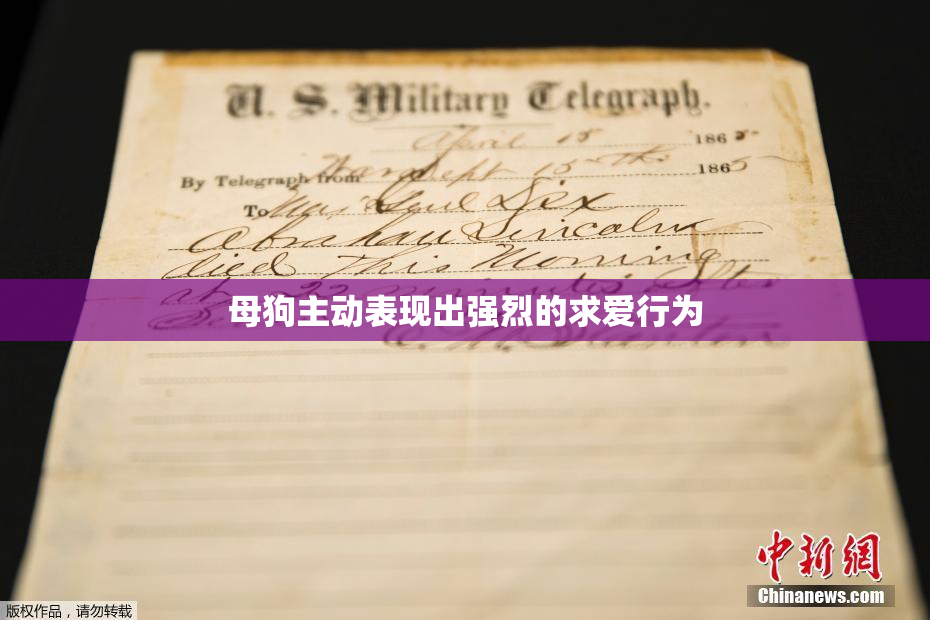 U. S. Military Telegraph.
April 15 1865
By Telegraph from War Dept 15th 1865
To Maj Genl Dix
Abraham Lincoln
died This Morning
at 22 minutes after
母狗主动表现出强烈的求爱行为
E. M. Stanton
中新網
Chinanews.com
版权作品，请勿转载